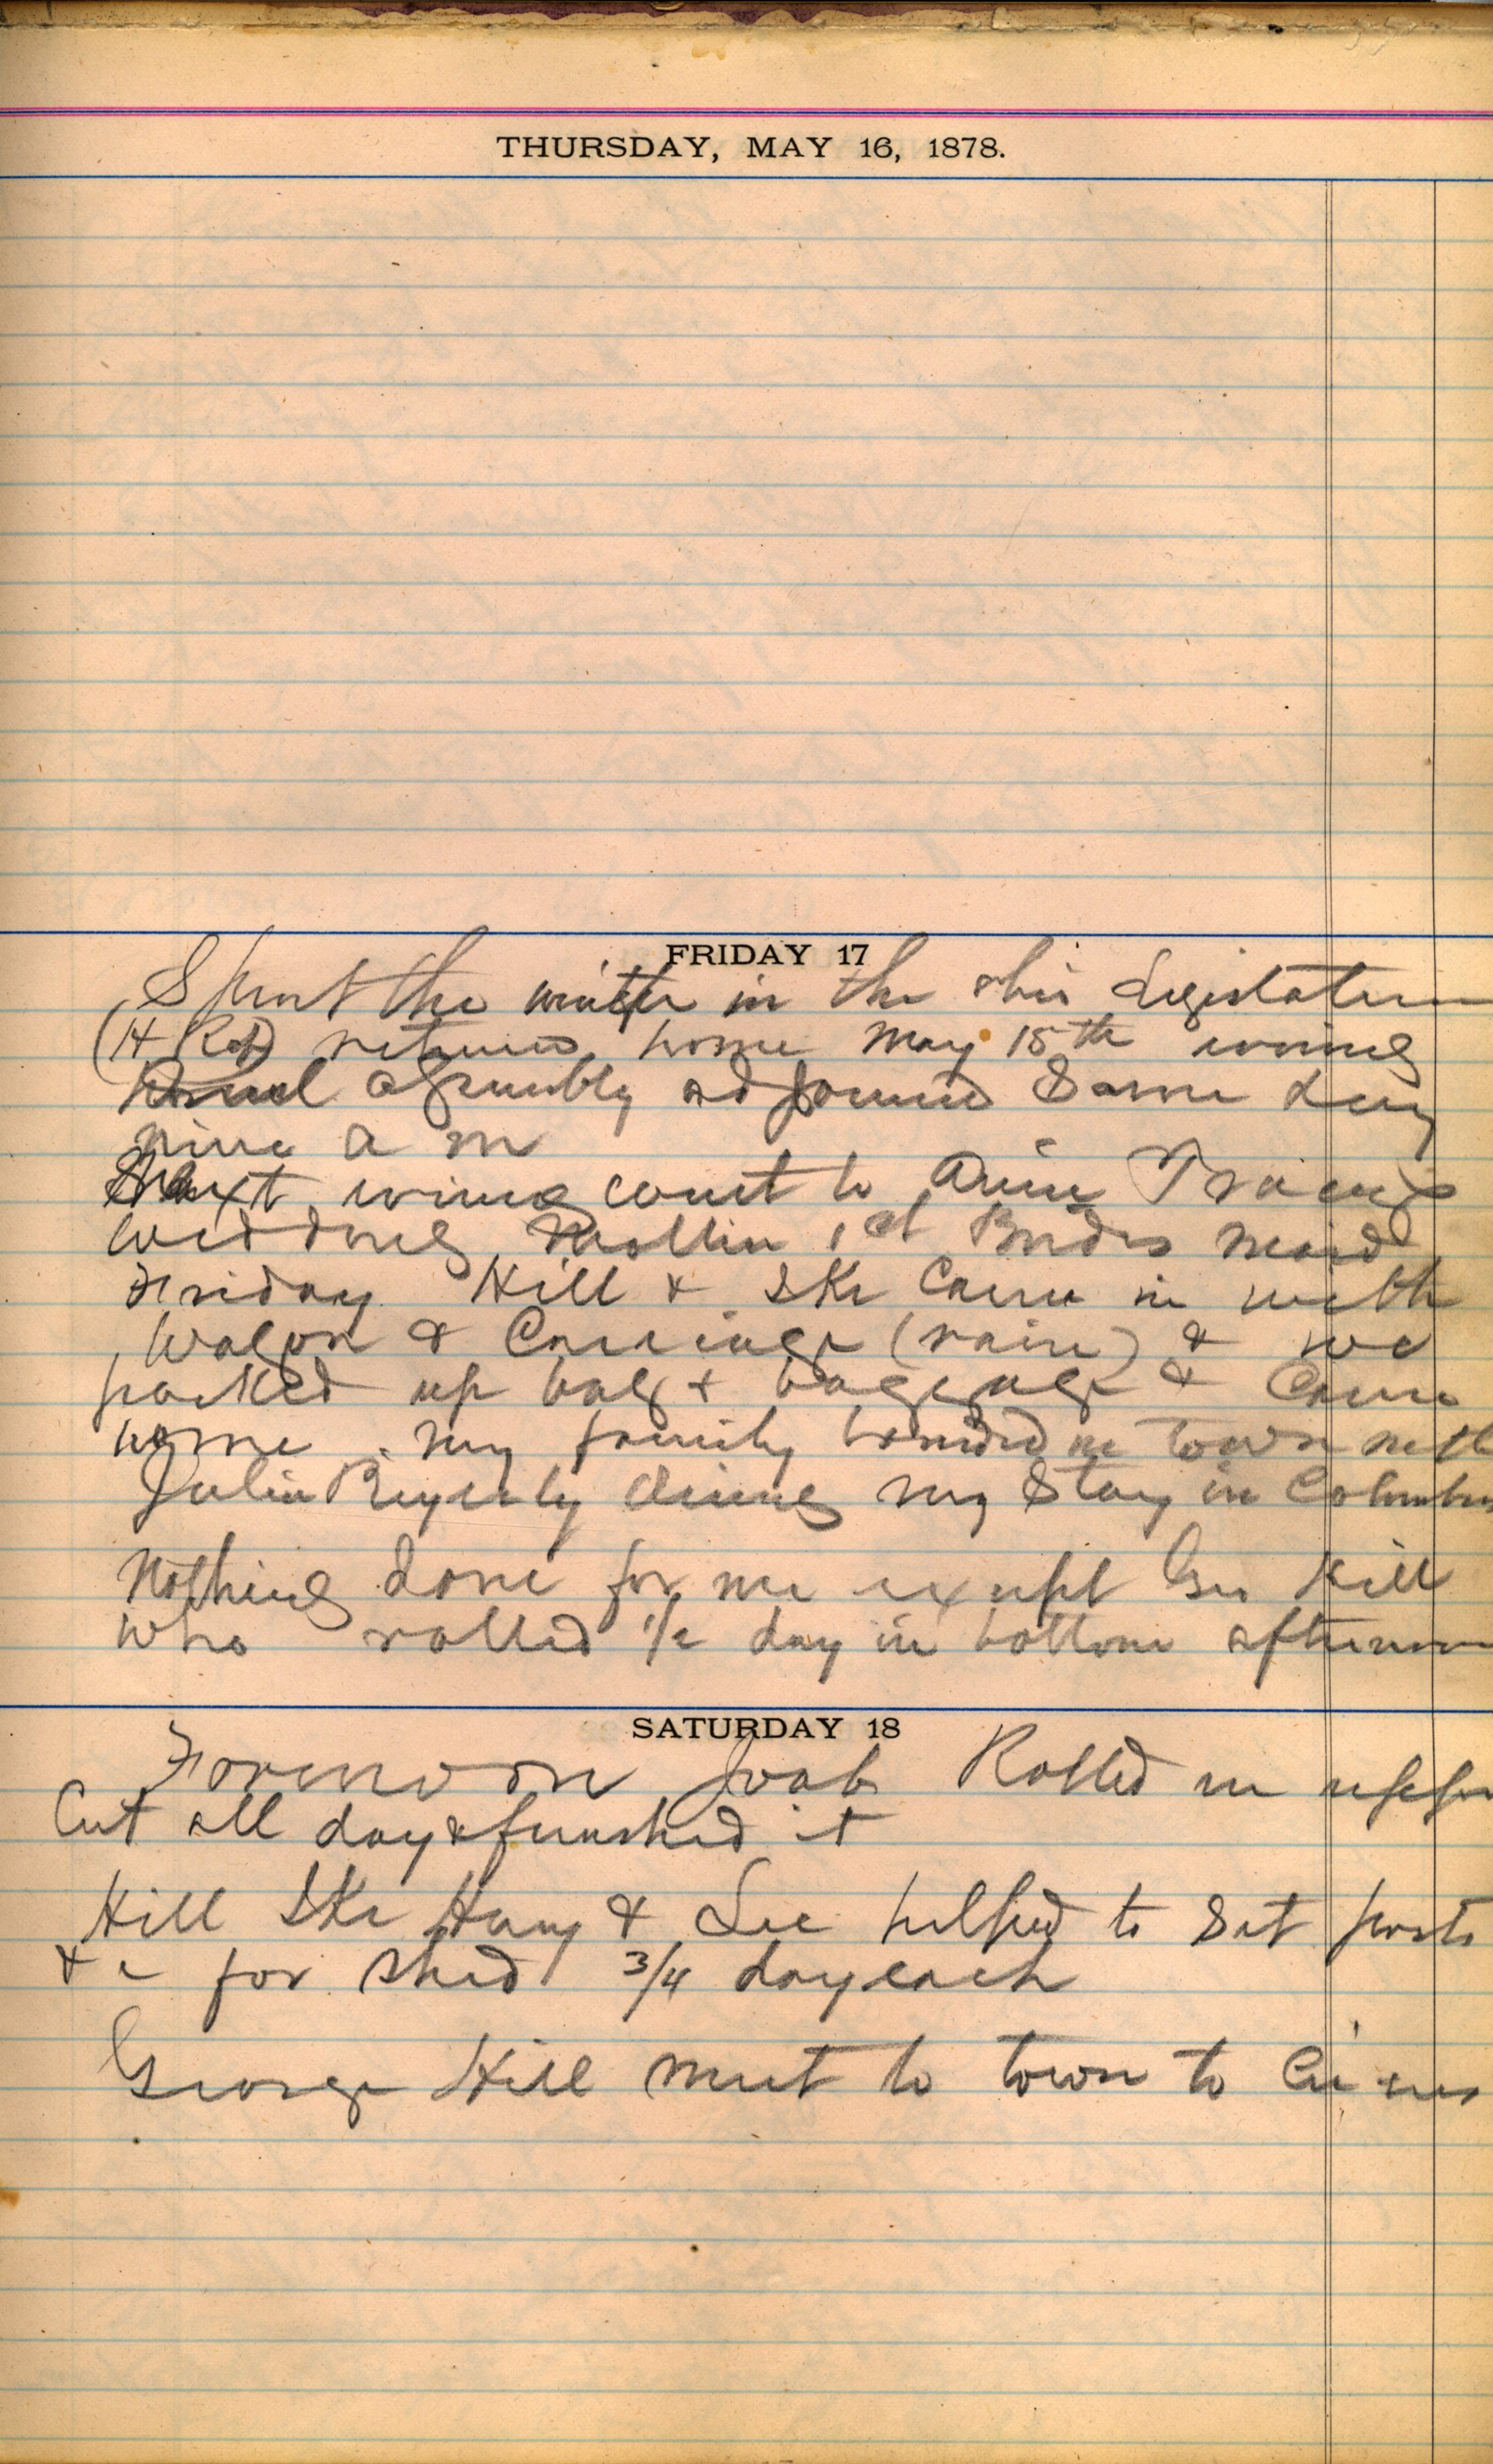 THURSDAY, MAY 16, 1878.
FRIDAY 17
Spent the winter in the ohio Legislature
(H Rep) returned home May 15th evening
assembly adjourned Same day
nine a m
Next evening went to Travis
wedding Mollie 1st Brides maid
Friday Hill & Ike Came in with
Wagon & Carriage (rain) & we
packed up bag & baggage & Came
home . my family boarded in town with
Julia during my Stay in Columbus
Nothing done for me except Geo Hill
who rolled 1/2 day in bottom afternoon
SATURDAY 18
Forenoon Joab Rolled in upper
Cut all day & finished it
Hill Ike Harry & Lee helped to Set posts
& c for shed 3/4 day each
George Hill went to town to Circus